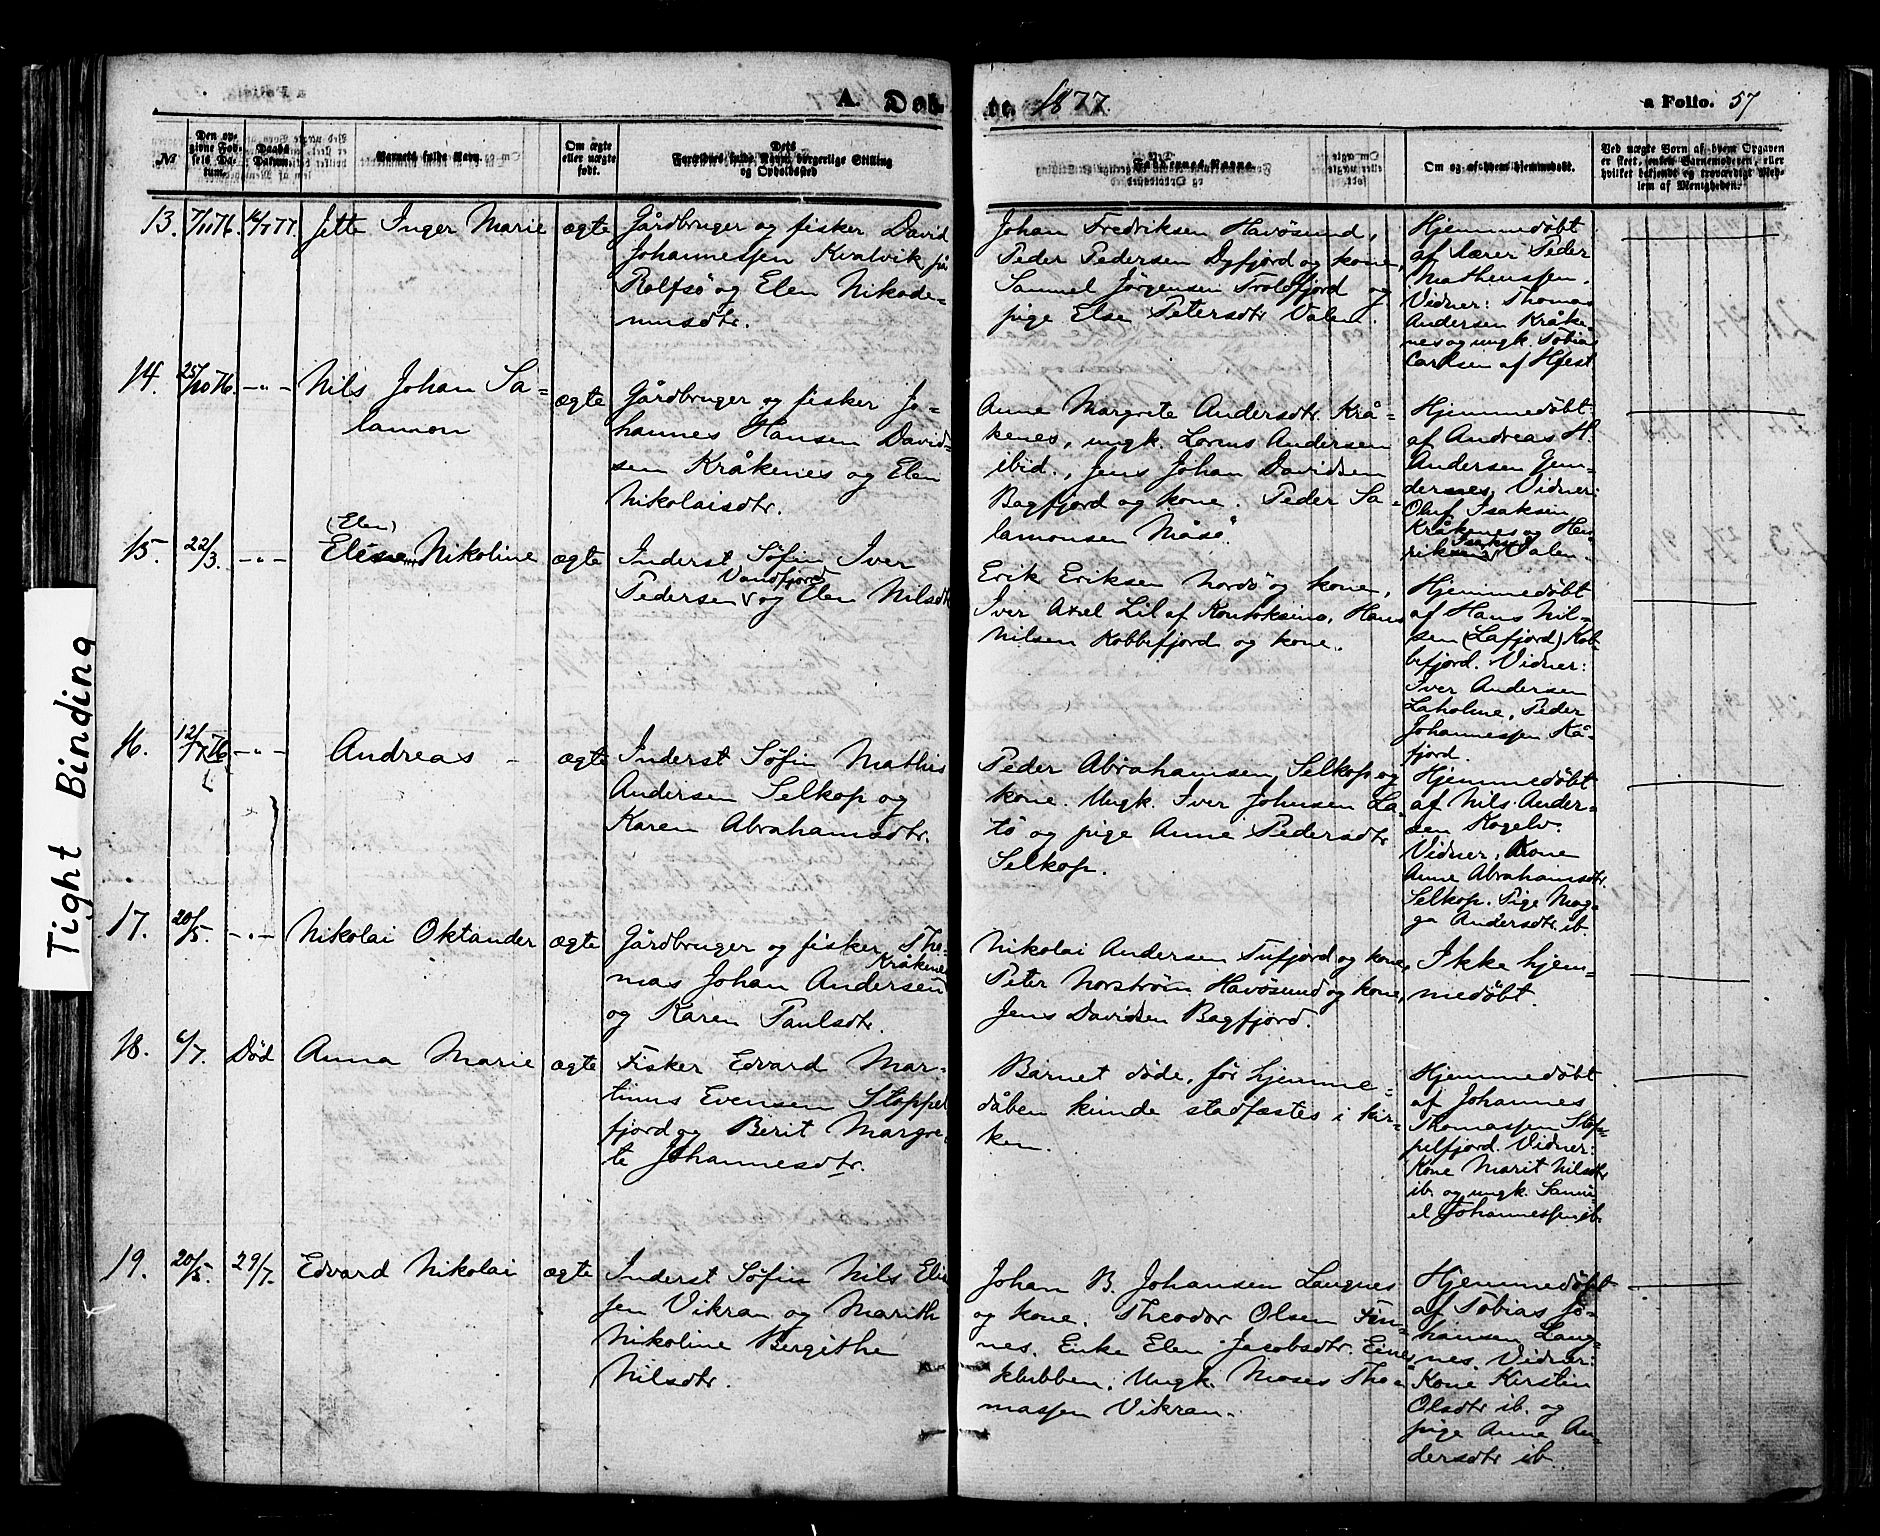 A. Døb-
te. 1877.
a Folio. 57
№
Den op-
givne Fød-
sels Da-
tum.
Daabs
Datum.
Barnets fulde Navn.
Om ægte
eller uægte
født.
Dets
Forældres fulde Navn, borgerlige Stilling
og Opholdssted
Faddernes Navne.
Om og af hvem hjemmedøbt.
Ved uægte Børn af hvem Opgaven
er skeet, enten Barnemoderen, eller
hvilket bekjendt og troværdigt Med-
lem af Menigheden.
13.
7/11 76.
Jette Inger Marie
ægte
Gårdbruger og fisker David
Johannessen Kvalvik på
Rolfsö og Elen Nikode-
musdtr.
Johan Fredriksen Havösund,
Peder Pedersen Dyfjord og kone,
Samuel Jörgensen Troldfjord og
pige Else Petersdtr Valen.
Hjemmedøbt
af Lærer Peder
Mathenssen.
Vidner: Thomas
Andersen Kråke-
nes og ungk. Tobias
Carlsen af Hfest
14.
25/10 76.
-"-
Nils Johan Sa-
lamon
ægte
Gårdbruger og fisker Jo-
hannes Hansen David-
sen Kråkenes og Elen
Nikolaisdtr.
Anne Margrete Andersdtr. Krå-
kenes, ungk. Lorens Andersen
ibid., Jens Johan Davidsen
Bagfjord og kone. Peder Sa-
lamonsen Måsö.
Hjemmedøbt
af Andreas H.
Andersen Gun-
dersnes, Vidner:
Oluf Isaksen
Kråkenes og Hen-
rik Isaksen Valen.
15.
22/3.
-"-
(Elen)
Elisa Nikoline
ægte
Inderst Søfin Iver
Pedersen Vandfjord og Elen Nilsdtr
Erik Eriksen Nordö og kone,
Iver Axel Lil af Koutokeino, Hans
Nilsen Kobbefjord og kone.
Hjemmedøbt
af Hans Nil-
sen (Lafjord) Kob-
befjord. Vidner:
Iver Andersen
Laholme, Peder
Johannessen Kå-
fjord.
16.
-"-
Andreas -
ægte
Inderst Søfin Mathis
Andersen Selkop og
Karen Abrahamsdtr.
Peder Abrahamsen Selkop og
kone. Ungk. Iver Johnsen La-
tö og pige Anne Pedersdtr
Selkop.
Hjemmedøbt
af Nils Ander-
sen Kogelv.
Vidner: Kone
Anne Abrahamsdtr.
Selkop. Pige Mag-
ga Andersdtr ib.
17.
20/5.
-"-
Nikolai Oktander
ægte
Gårdbruger og fisker Tho-
mas Johan Andersen Kråkenes
og Karen Paulsdtr.
Nikolai Andersen Tufjord og kone,
Peter Norström Havösund og kone,
Jens Davidsen Bagfjord.
Ikke hjem-
medøbt
18.
6/7.
Død
Anna Marie
ægte
Fisker Edvard Mar-
tinus Evensen Stoppel-
fjord og Berit Margre-
te Johannesdtr.
Barnet døde, før hjemme-
dåben kunde stadfæstes i kir-
ken.
Hjemmedøbt
af Johannes
Thomassen Stop-
pelfjord. Vidner:
Kone Marit Nilsdtr
ib. og ungk. Samu-
el Johannessen ib.
19.
20/5.
29/7.
Edvard Nikolai
ægte
Inderst Søfin Nils Elia-
sen Vikran og Marith
Nikoline Bergithe
Nilsdtr.
Johan B. Johansen Langnes
og kone. Theodor Olsen Fin-
nes. Enke Elen Jacobsdtr. Einer-
klubben, Ungk. Moses Tho-
massen Vikran.
Hjemmedøbt
af Tobias Jo-
hansen Lang-
nes. Vidner:
Kone Kirstin
Olsdtr ib. og
pige Anne An-
dersdtr ib.
Tight Binding